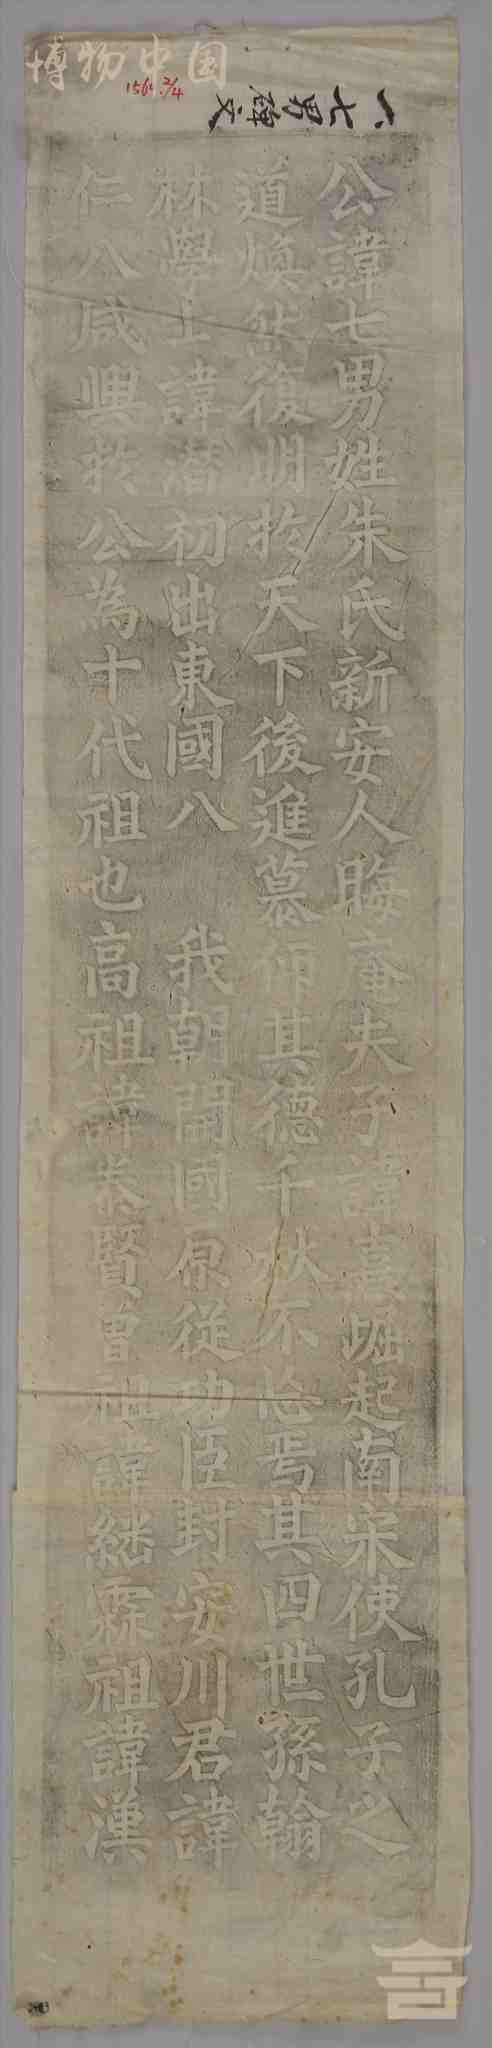 博物中国
1565 2/4
一、七男碑文
公諱七男姓朱氏新安人晦庵夫子諱熹崛起南宋使孔子之
道煥然復明於天下後進慕仰其德千秋不忘焉其四世孫翰
林學士諱潛初出東國八 我朝開國原從功臣封安川君諱
仁八咸興於公為十代祖也高祖諱恭賢曾祖諱繼霖祖諱漢